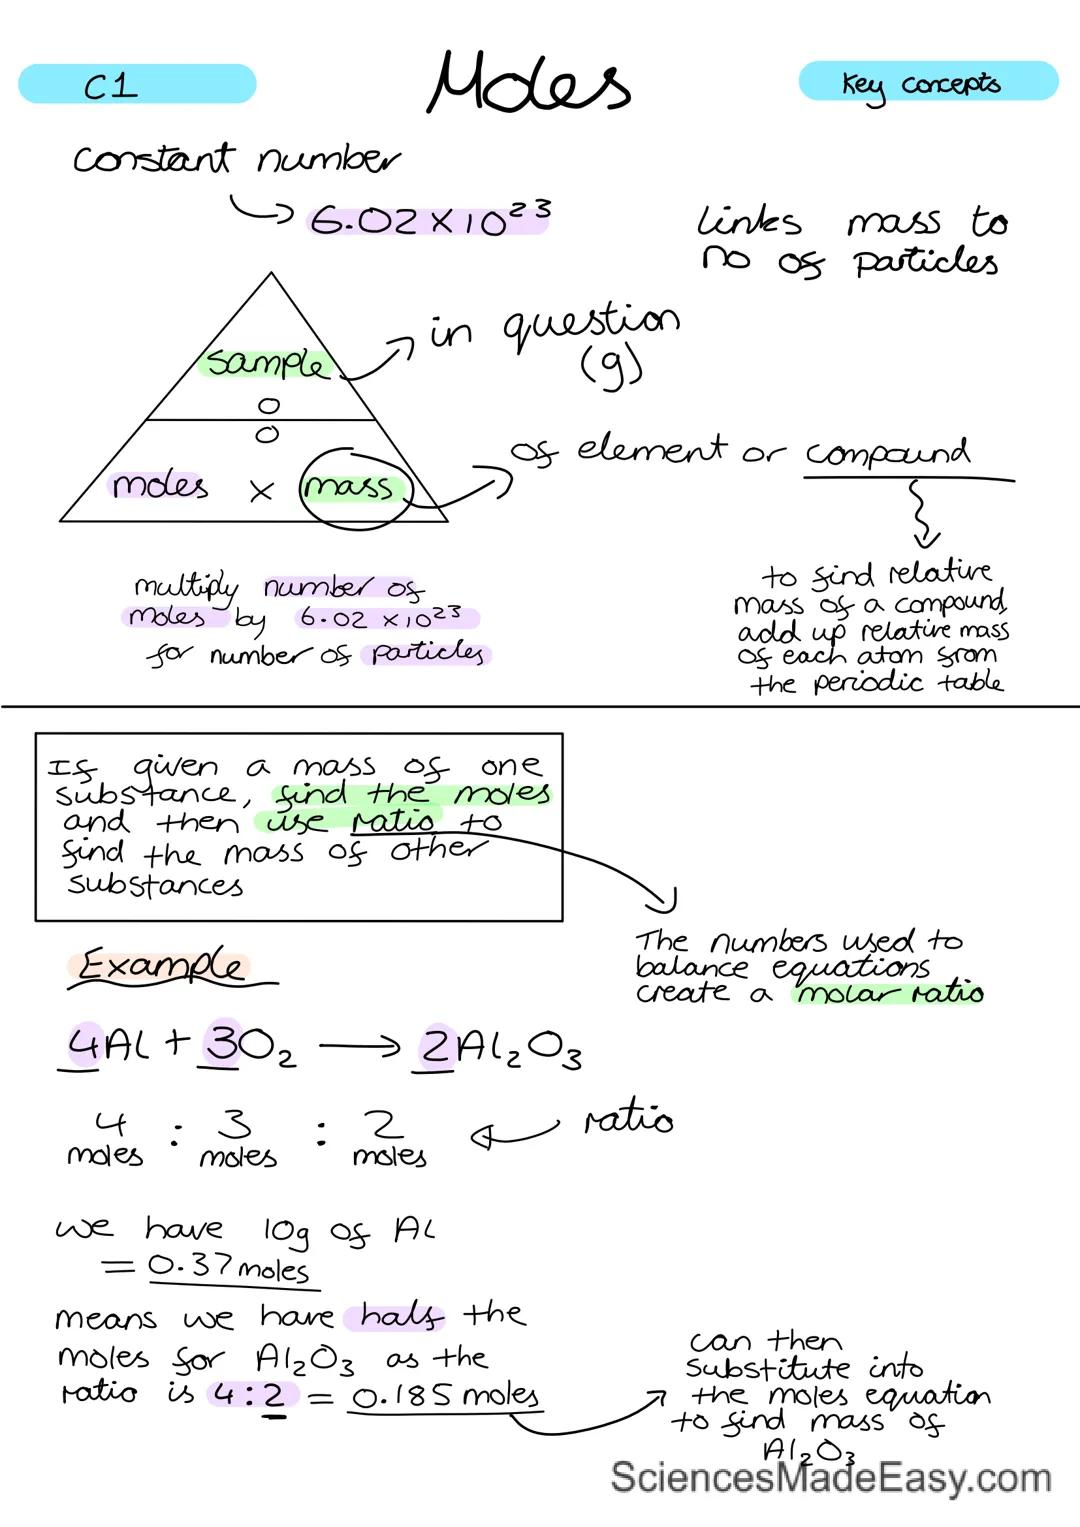 C1
Moles
Key concepts
constant number
6.02 x 10²³
links mass to
no of particles
sample
in question
(g)
moles x mass
of element or compound
multiply number of
moles by 6.02 x 10²³
for number of particles
to find relative
mass of a compound,
add up relative mass
of each atom from
the periodic table
If given a mass of one
substance, find the moles
and then use ratio to
find the mass of other
substances
The numbers used to
balance equations
create a molar ratio
Example
4Al + 3O₂ → 2Al₂O₃
4 : 3 : 2
moles moles moles
ratio
we have 10g of Al
= 0.37 moles
means we have half the
moles for Al₂O₃ as the
ratio is 4:2 = 0.185 moles
can then
substitute into
the moles equation
to find mass of
Al₂O₃
SciencesMadeEasy.com